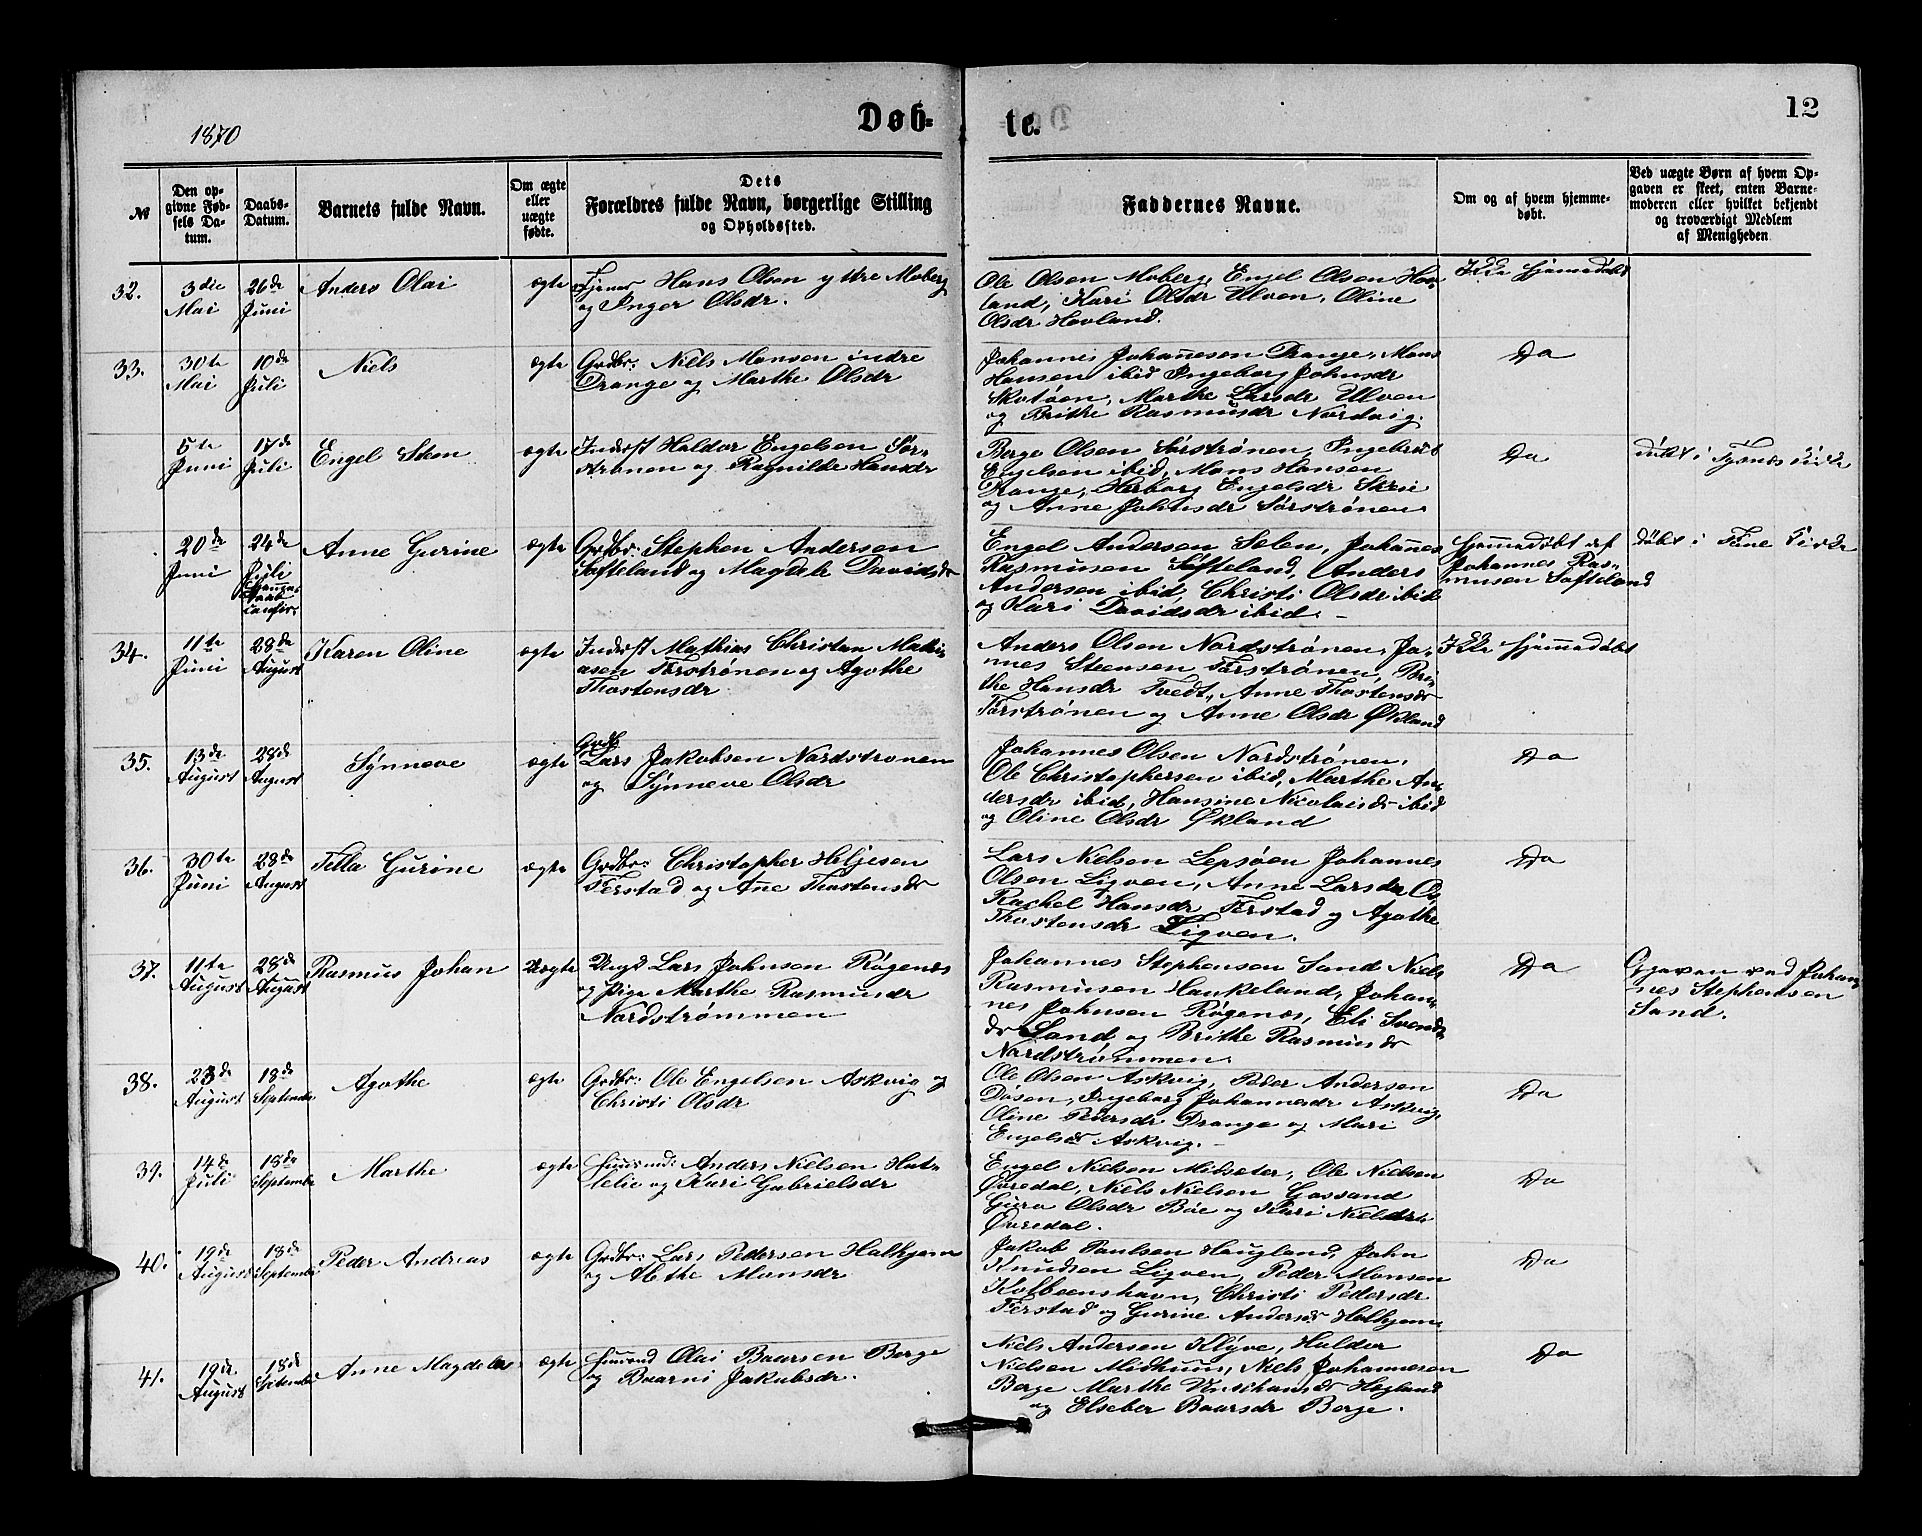 1870
Døb-
te.
12
№
Den op-
givne Fød-
sels Da-
tum.
Daabs-
Datum.
Barnets fulde Navn.
Om ægte
eller
uægte
fødte.
Dets
Forældres fulde Navn, borgerlige Stilling
og Opholdssted.
Faddernes Navne.
Om og af hvem hjemme-
døbt.
Ved uægte Børn af hvem Op-
gaven er skeet, enten Barne-
moderen eller hvilket bekjendt
og troværdigt Medlem
af Menigheden
32.
3die
Mai
26de
Juni
Anders Olai
ægte
Tjener Hans Olsen yttre Moberg
og Inger Olsdr.
Ole Olsen Moberg, Engel Olsen Hov-
land, Kari Olsdr Ulven, Oline
Olsdr Hovland.
Ikke hjemmedøbt
33.
30te
Mai
10de
Juli
Niels
ægte
Grdbr: Niels Monsen indre
Drange og Marthe Olsdr
Johannes Johannesen Drange, Mons
Hansen ibid Ingeborg Johnsdr
Skotøen, Marthe Larsdr Ulven
og Brithe Rasmusdr Nordvig.
Do
5te
Juni
17de
Juli
Engel Steen
ægte
Inderst Haldor Engelsen Sør-
strønen og Ragnilde Hansdr
Berge Olsen Sørstrønen, Ingebrigt
Engelsen ibid, Mons Hansen
Drange, Herborg Engelsdr Skeie
og Anne Johnsdr Sørstrønen.
Do
døbt i Tysnes Kirke
20de
Juni
24de
Juli
Anne Gurine
ægte
Grdbr: Stephen Andersen
Søfteland og Magdele Davidsdr
Engel Andersen Solen, Johannes
Rasmusen Søfteland, Anders
Andersen ibid, Christi Olsdr ibid
og Kari Davidsdr ibid.
Hjemmedøbt af
Johannes Ras-
musen Søfteland
døbt i Fane Kirke
34.
11te
Juni
28de
August
Karen Oline
ægte
Inderst Mathias Christian Mathi-
asen Færstrønen og Agothe
Thostensdr
Anders Olsen Nordstrønen, Jo-
nnes Steensen Færstrønen, Bri-
the Hansdr Tvedt, Anne Thostensdr
Færstrønen og Anne Olsdr Økland
Ikke hjemmedøbt
35.
13de
August
28de
August
Synneve
ægte
Grdb
Lars Jakobsen Nordstrønen
og Synneve Olsdr
Johannes Olsen Nordstrønen,
Ole Christophersen ibid, Marthe An-
dersdr ibid, Hansine Nicolaisdr ibid
og Oline Olsdr Økland
Do
36.
30te
Juni
28de
August
Tella Gurine
ægte
Grdbr: Christopher Heljesen
Ferstad og Ane Thostensdr
Lars Nielsen Lepsøen Johannes
Olsen Ligven, Anne Larsdr Os
Rachel Hansdr Ferstad og Agothe
Thostensdr Ligven.
Do
37.
11te
August
28de
August
Rasmus Johan
Uægte
Ungk Lars Johnsen Røgenæs
og Pige Marthe Rasmusdr
Nordstrømmen
Johannes Stephensen Sand Niels
Rasmusen Haukeland, Johan-
nes Johnsen Røgenæs, Eli Svends-
dr Sand og Brithe Rasmusdr
Nordstrømmen.
Do
Opgaven ved Johan-
nes Stephensen
Sand.
38.
23de
August
18de
September
Agothe
ægte
Grdbr: Ole Engelsen Askvig og
Christi Olsdr
Ole Olsen Askvig, Peder Andersen
Døsen, Ingeborg Johannesdr Askvig,
Oline Pedersdr Drange og Mari
Engelsdr Askvig.
Do
39.
14de
Juli
18de
September
Marthe
ægte
Huusmd: Anders Nielsen Hat-
lelie og Kari Gabrielsdr
Engel Nielsen Midsæter, Ole Nielsen
Øvredal, Niels Nielsen Gaasand
Guro Olsdr Bøe og Kari Nielsdr
Øvredal.
Do
40.
19de
August
18de
September
Peder Andreas
ægte
Grdbr: Lars Pedersen Halhjem
og Alethe Monsdr
Jakob Paulsen Haugland, John
Knudsen Ligven, Peder Monsen
Kolbeenshavn, Christi Pedersdr
Ferstad og Gurine Andersdr Halhjem
Do
41.
19de
August
18de
September
Anne Magdele
ægte
Huusmd Olai Baarsen Berge
og Baarni Jakobsdr.
Niels Andersen Klyve, Haldor
Nielsen Midhuus, Niels Johannesen
Berge Marthe Hogland
og Elseber Baarsdr Berge.
Do